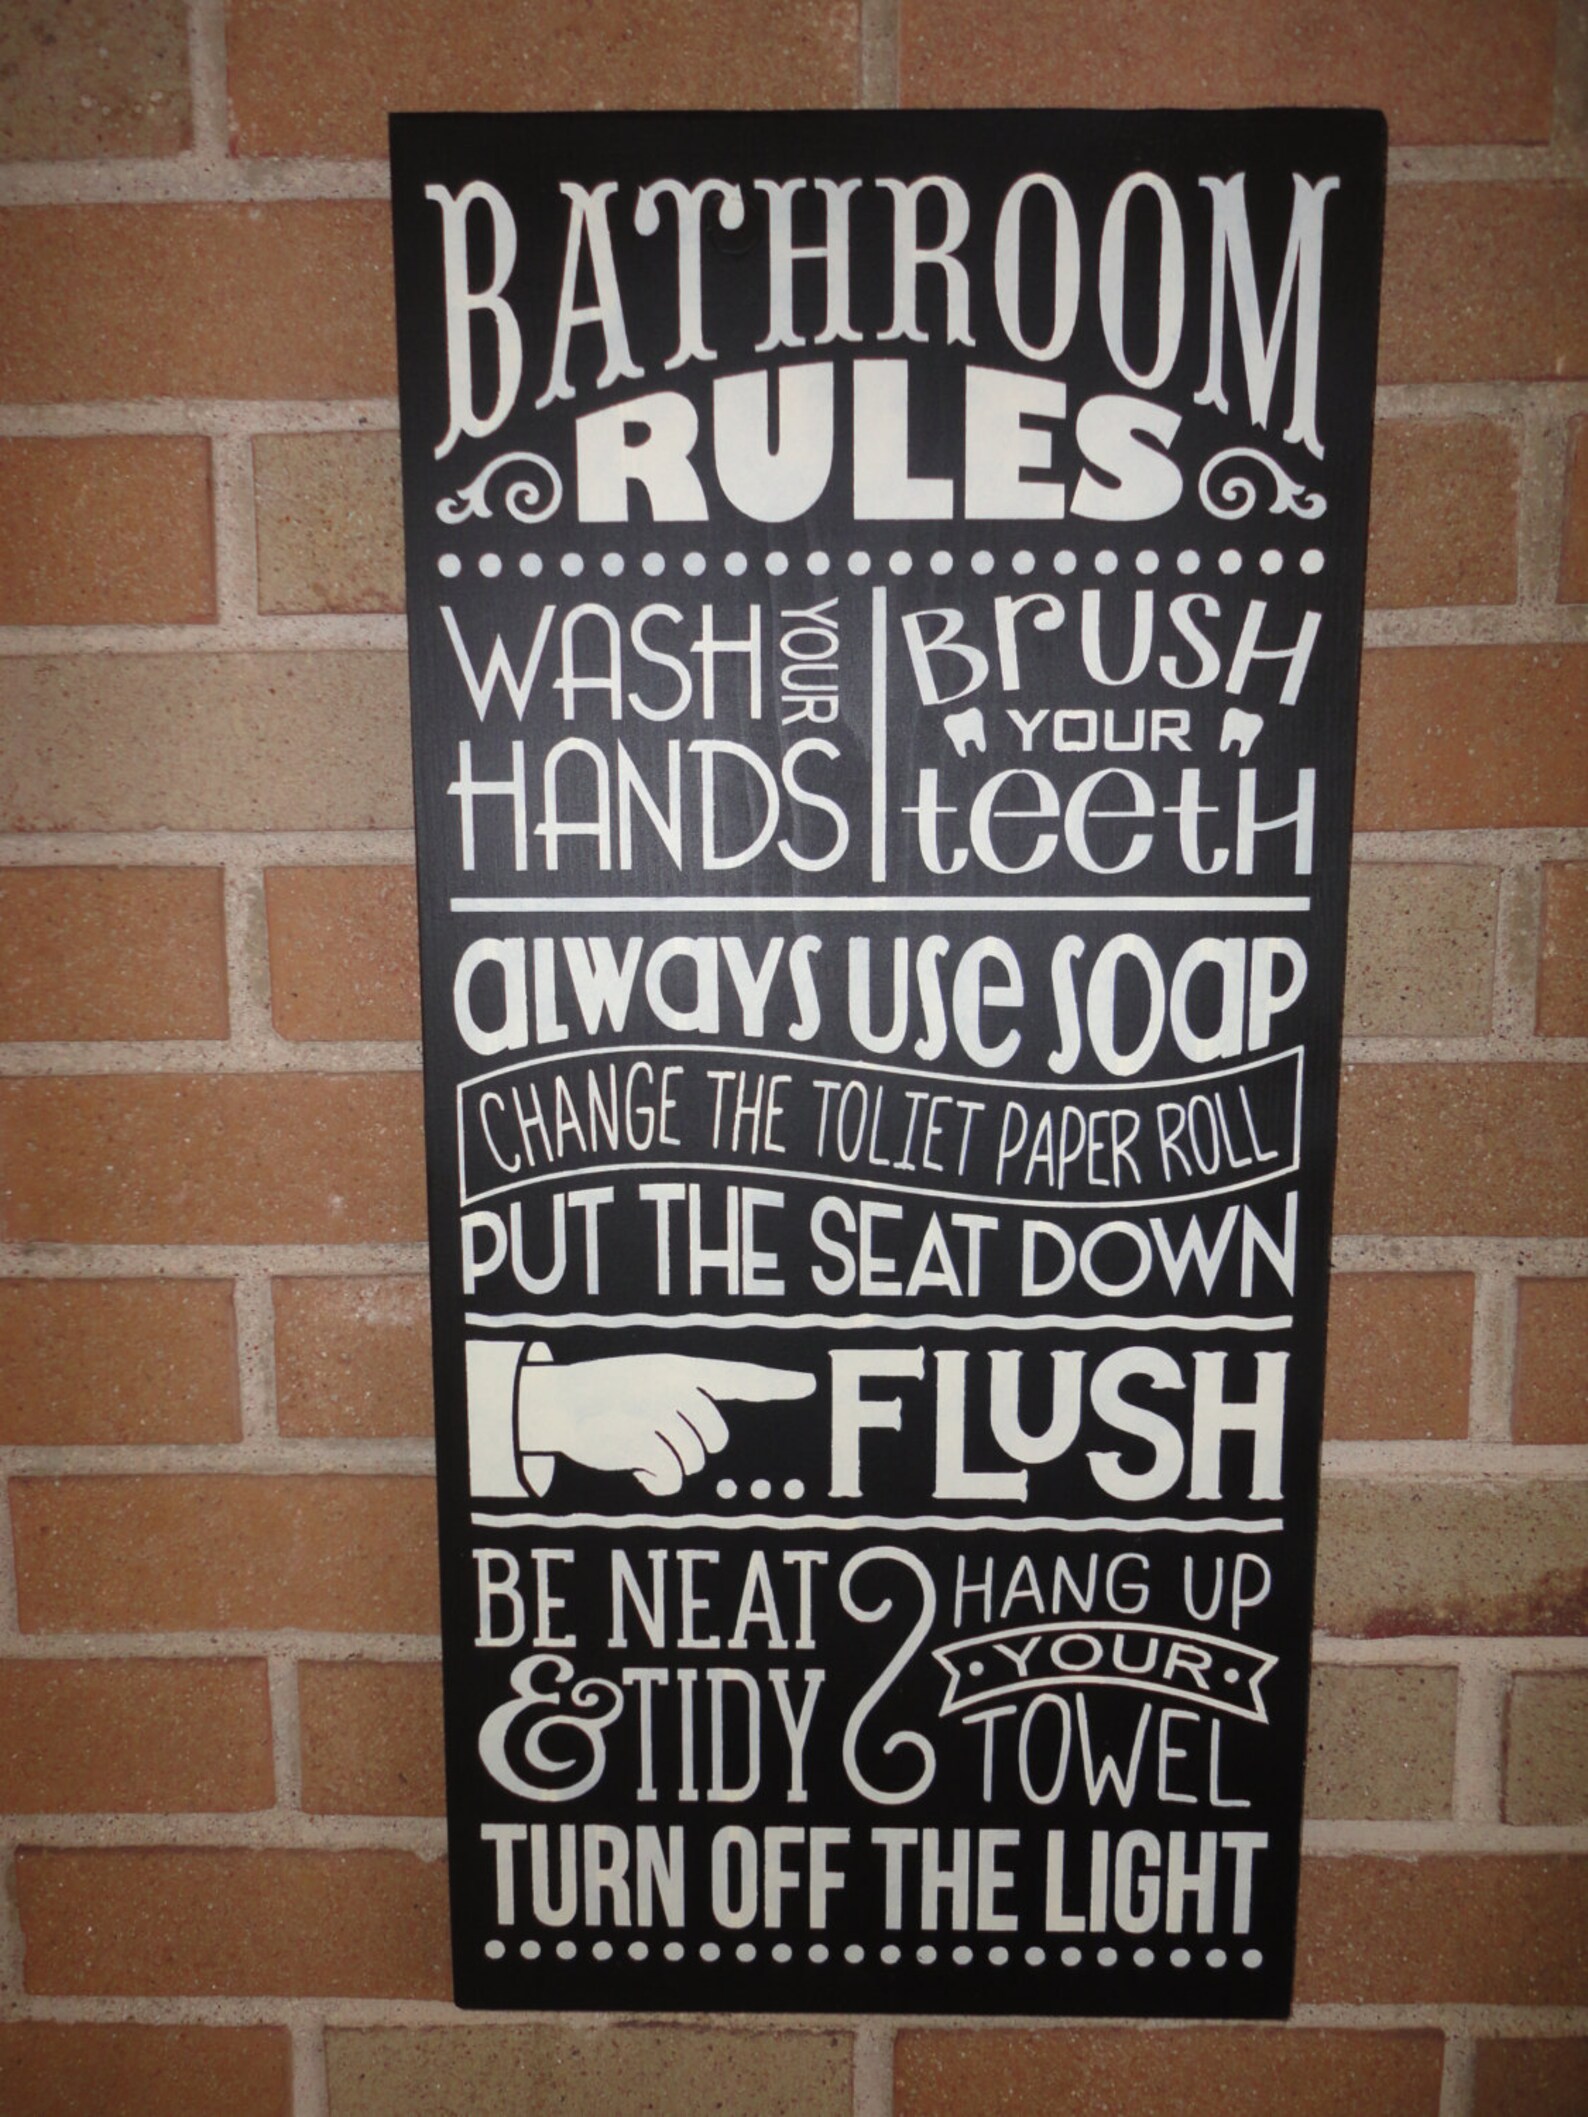 BATHROOM
RULES
WASH YOUR
HANDS
BrusH
YOUR
teetH
always use soap
CHANGE THE TOLIET PAPER ROLL
PUT THE SEAT DOWN
...FLUSH
BE NEAT
& TIDY
HANG UP
•YOUR•
TOWEL
TURN OFF THE LIGHT